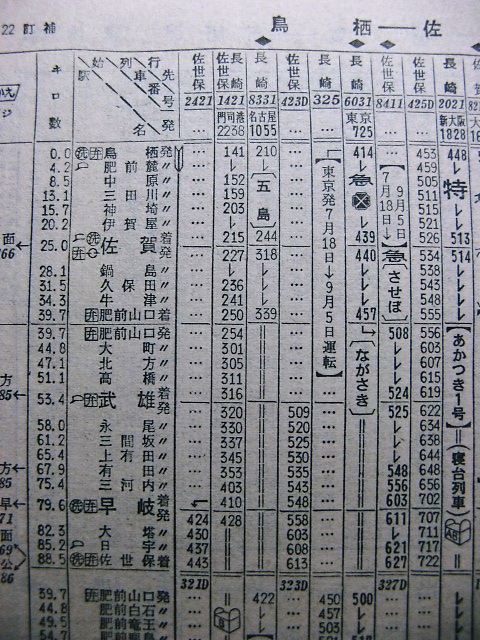 22 訂補
鳥 栖──佐
キロ数 始発駅 列車番号 行先 名
佐世保 長崎 長崎 佐世保 長崎 長崎 佐世保 佐世保 長崎
2421 1421 8331 423D 325 6031 8411 425D 2021
門司港 2238 名古屋 1055 東京 725 新大阪 1828
0.0 鳥栖発 … 141 210 … 414 453 448
4.2 肥前麓〃 … 459
8.5 中原〃 … 152 505
13.1 三田川〃 … 159 511
15.7 神埼〃 … 203 515
20.2 伊賀屋〃 … 521
25.0 佐賀 着 … 215 244 … 439 526 513
発 … 227 318 … 440 534 514
28.1 鍋島〃 … 538
31.5 久保田〃 … 236 543
34.3 牛津〃 … 241 548
39.7 肥前山口 着 … 250 339 … 457 555
39.7 肥前山口 発 … 254 || … 508 556
44.8 大町〃 … 301 || … 603
47.1 北方〃 … 305 || … 607
51.1 高橋〃 … 311 || … 614
53.4 武雄 着 … 316 || … 524 619
発 … 320 || 509 … 525 622
58.0 永尾〃 … 330 || 520 … 630
61.2 三間坂〃 … 337 || 525 … 638
65.4 上有田〃 … 345 || 530 … 644
67.9 有田〃 … 353 || 535 … 548 648
75.4 三河内〃 … 403 || 543 … 556 656
79.6 早岐 着 410 || 548 … 603 702
発 424 428 || 558 … 611 707
82.3 大塔〃 430 || || 603 … 711
85.2 日宇〃 437 || || 608 … 621 717
88.5 佐世保着 443 || || 613 … 627 722
五島
東京発7月18日→9月5日運転
急
ながさき
7月18日→9月5日
急
させぼ
特
あかつき1号
寝台列車
321D 323D 327D
39.7 肥前山口発 422 … 450 500
44.8 肥前白石〃 … 457
49.5 肥前竜王〃 … 503